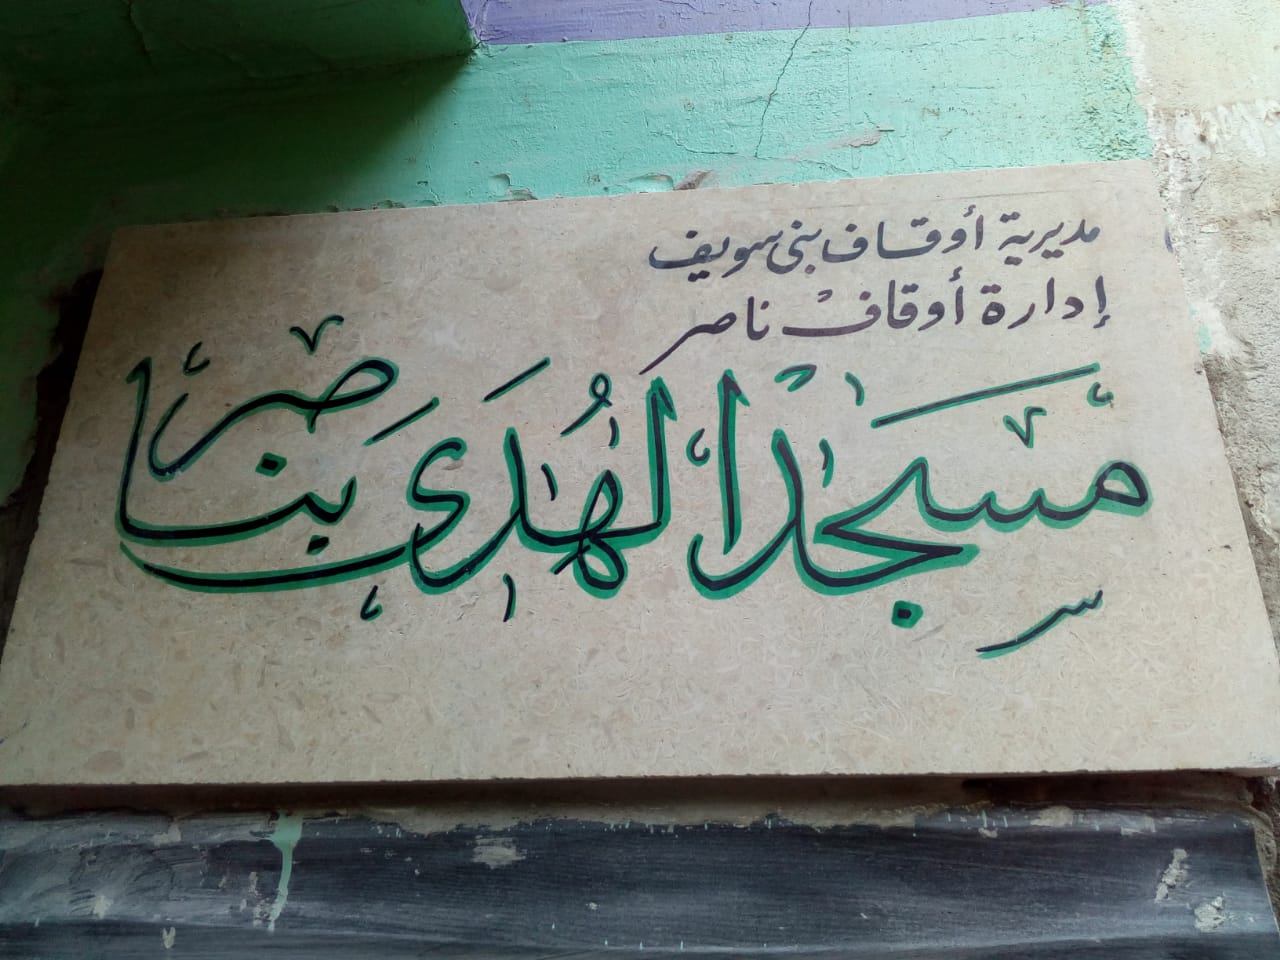 مديرية أوقاف بنى سويف
إدارة أوقاف ناصر
مسجد الهُدَى بناصر